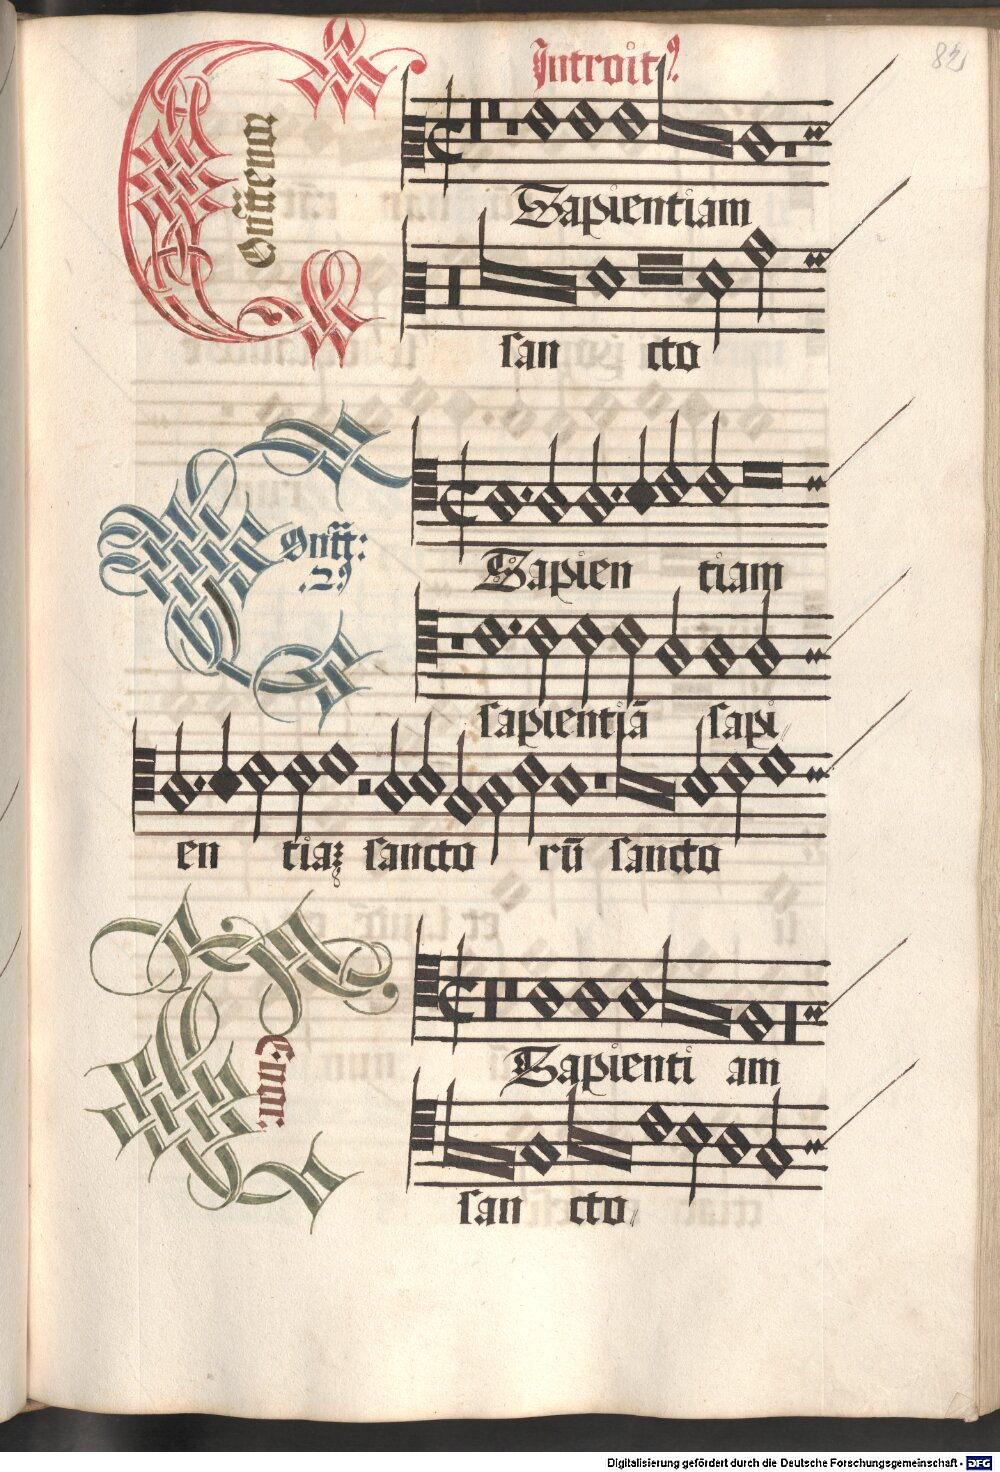 Introitꝰ.
82
Contratenor
Sapientiam
san cto
Contᷓ:
.2ꝰ
Sapien tiam
sapientiā sapi
en tiaꝝ sancto rū sancto
Tenor.
Sapienti am
san cto
Digitalisierung gefördert durch die Deutsche Forschungsgemeinschaft - DFG